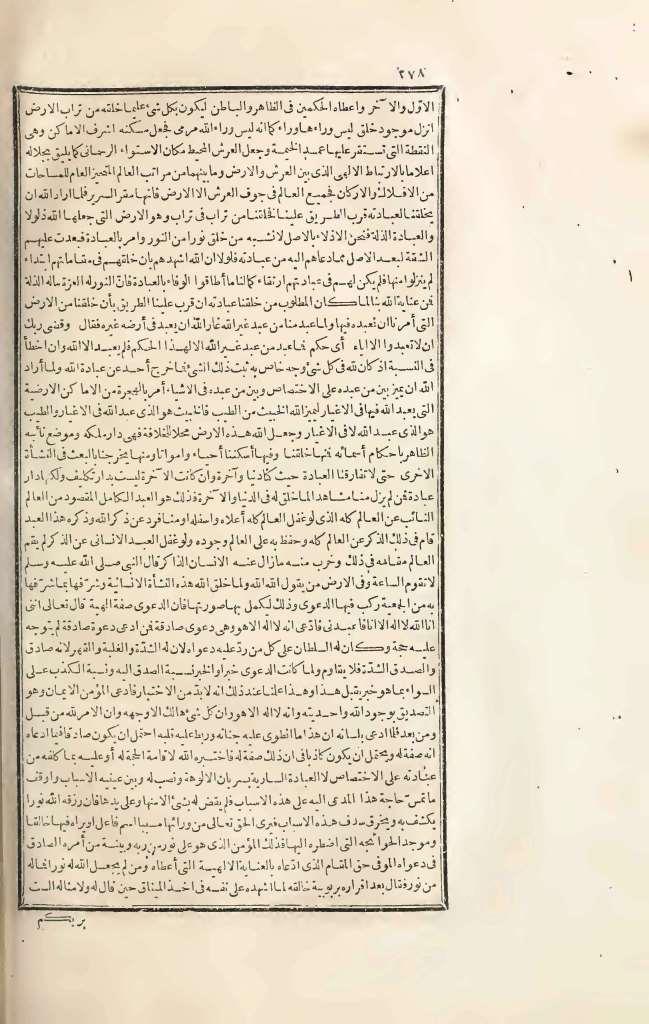 ٢٧٨
الاول والآخر واعطاه الحكمين فى الظاهر والباطن ليكون بكل شئ عليما خلقه من تراب الارض
انزل موجود خلق ليس وراءها وراء كما انه ليس وراء الله مرمى فجعل مسكنه اشرف الاماكن وهى
النقطة التى تستقر عليها عمد الخيمة وجعل العرش المحيط مكان الاستواء الرحمانى كما يليق بجلاله
اعلاما بالارتباط الالهى الذى بين العرش والارض وما بينهما من مراتب العالم المتحيز العام للمساحات
من الافلاك والاركان فجميع العالم فى جوف العرش الا الارض فانها مقر السرير فلما اراد الله ان
يخلقنا لعبادته قرب الطريق علينا فخلقنا من تراب فى تراب وهو الارض التى جعلها الله ذلولا
والعبادة الذلة فنحن الاذلاء بالاصل لانشبه من خلق نورا من النور وامر بالعبادة فبعدت عليهم
الشقة لبعد الاصل مما دعاهم اليه من عبادته فلولا ان الله اشهدهم بان خلقهم فى مقاماتهم ابتداء
لم ينزلوا منها فلم يكن لهم فى عبادتهم ارتقاء كما لنا ما أطاقوا الوفاء بالعبادة فان النور له العزة ماله الذلة
فمن عناية الله بنا لما كان المطلوب من خلقنا عبادته ان قرب علينا الطريق بأن خلقنا من الارض
التى أمرنا ان نعبده فيها ولما عبد منا من عبد غير الله غار الله ان يعبد فى أرضه غيره فقال وقضى ربك
ان لا تعبدوا الا اياه أى حكم فما عبد من عبد غير الله الا لهذا الحكم فلم يعبد الا الله وان اخطأ
فى النسبة اذ كان لله فى كل شئ وجه خاص به ثبت ذلك الشئ فما خرج أحد عن عبادة الله ولما أراد
الله ان يميز بين من عبده على الاختصاص وبين من عبده فى الاشياء أمر بالهجرة من الاماكن الارضية
التى يعبد الله فيها فى الاغيار ليميز الله الخبيث من الطيب فالخبيث هو الذى عبد الله فى الاغيار والطيب
هو الذى عبد الله لا فى الاغيار وجعل الله هذه الارض محلا للخلافة فهى دار ملكه وموضع نائبه
الظاهر باحكام أسمائه فمنها خلقنا وفيها أسكننا أحياء وامواتا ومنها يخرجنا بالبعث فى النشأة
الاخرى حتى لا تفارقنا العبادة حيث كنا دنيا وآخرة وان كانت الآخرة ليست بدار تكليف ولكنها دار
عبادة فمن لم يزل منا مشاهدا لما خلق له فى الدنيا والآخرة فذلك هو العبد الكامل المقصود من العالم
النائب عن العالم كله الذى لو غفل العالم كله أعلاه واسفله او منا فرد عن ذكر الله وذكره هذا العبد
قام فى ذلك الذكر عن العالم كله وحفظ به على العالم وجوده ولو غفل العبد الانسانى عن الذكر لم يقم
العالم مقامه فى ذلك وخرب منه ما زال عنه الانسان الذاكر قال النبى صلى الله عليه وسلم
لا تقوم الساعة وفى الارض من يقول الله الله ولما خلق الله هذه النشأة الانسانية وشرفها بما شرفها
به من الجمعية ركب فيها الدعوى وذلك ليكمل بها صورتها فان الدعوى صفة الهية قال تعالى اننى
انا الله لا اله الا انا فاعبدنى فادعى انه لا اله الا هو وهى دعوى صادقة فمن ادعى دعوة صادقة لم يتوجه
عليه حجة وكان له السلطان على كل من رد عليه دعواه لان له الشدة والغلبة والقهر لانه صادق
والصدق الشدة فلا يقاوم ولما كانت الدعوى خبرا والخبر نسبة الصدق اليه ونسبة الكذب على
السواء بما هو خبر يقبل هذا وهذا علمنا عند ذلك انه لا بد من الاختبار فادعى المؤمن الايمان وهو
التصديق بوجود الله واحديته وانه لا اله الا هو وان كل شئ هالك الا وجهه وان الامر لله من قبل
ومن بعد فلما ادعى بلسانه ان هذا مما انطوى عليه جنانه وربط عليه قلبه احتمل ان يكون صادقا فيما ادعاه
انه صفة له ويحتمل ان يكون كاذبا فى ان ذلك صفة له فاختبره الله لاقامة الحجة له أو عليه بما كلفه من
عبادته على الاختصاص لا العبادة السارية بسريان الالوهة ونصب له وبين عينيه الاسباب واوقف
ما تمس حاجة هذا المدعى اليه على هذه الاسباب فلم يقض له بشئ الا منها وعلى يدها فان رزقه الله نورا
يكشف به ويخرق سدف هذه الاسباب فيرى الحق تعالى من ورائها مسببا اسم فاعل او يراه فيها خالقا
وموجد الحوائجه التى اضطره اليها فذلك المؤمن الذى هو على نور من ربه وبينة من أمره الصادق
فى دعواه الموفى حق المقام الذى ادعاه بالعناية الالهية التى أعطاه ومن لم يجعل الله له نورا فما له
من نور فقال بعد اقراره بربوبية خالقه لما اشهده على نفسه فى اخذ الميثاق حين قال له ولامثاله الست
بربكم